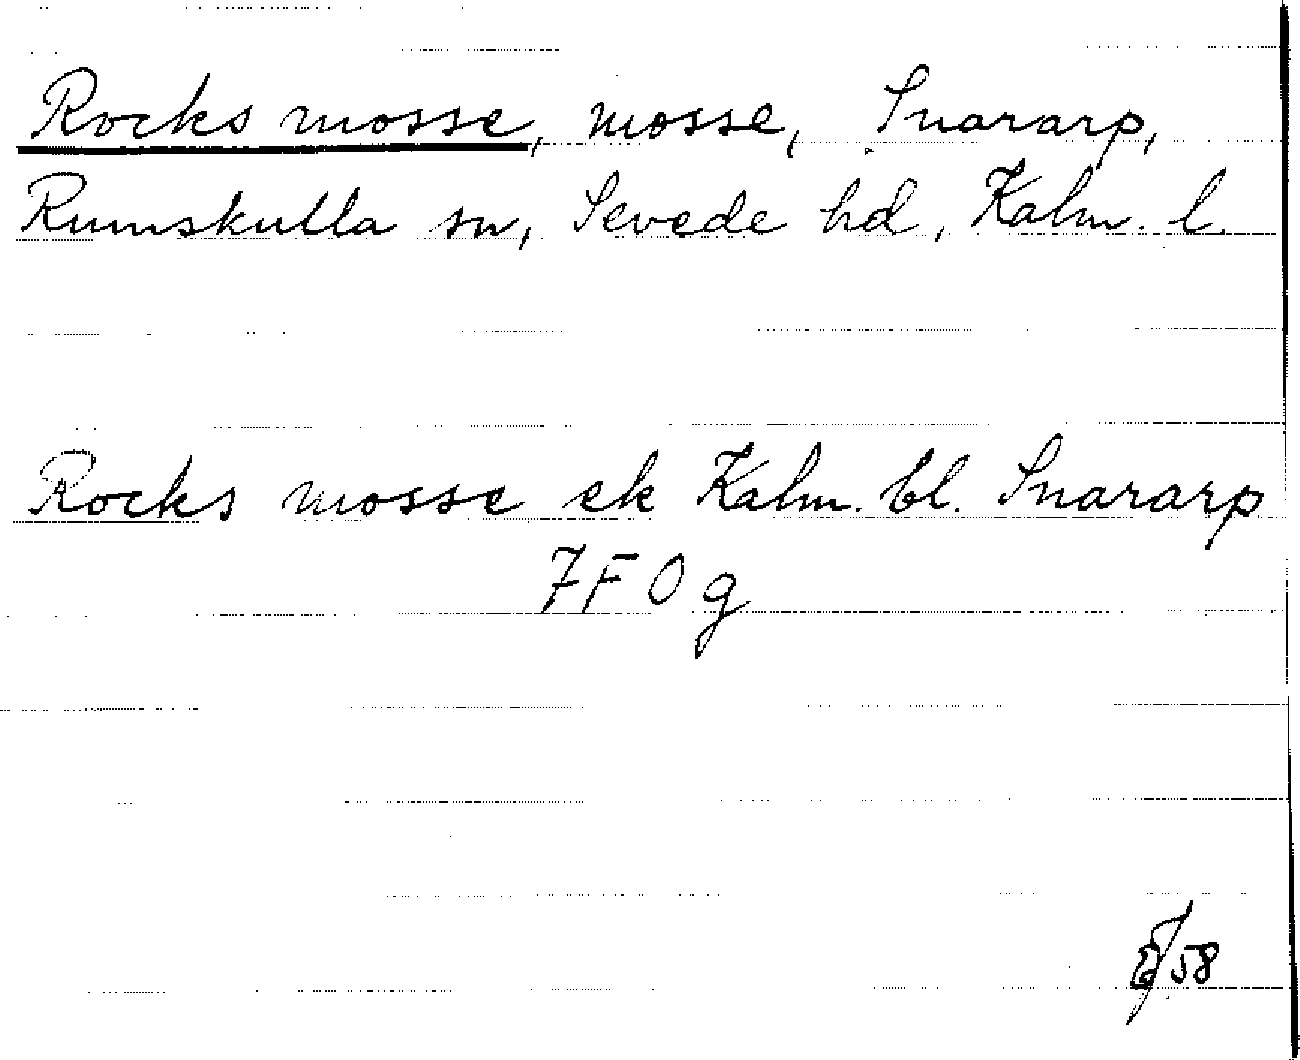 Rocks mosse, mosse, Snararp,
Rumskulla sn, Sevede hd, Kalm. l.
Rocks mosse ek Kalm. bl. Snararp
7F0g
/58